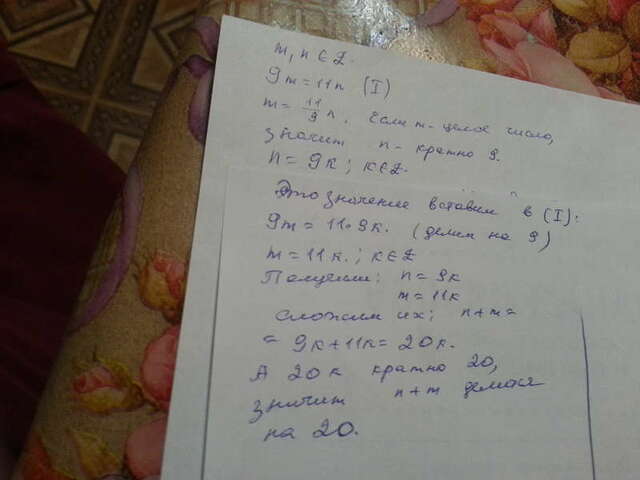 m, n ∈ Z.
9m = 11n (I)
m = 11/9 n. Если m - целое число,
значит n - кратно 9.
n = 9k ; k ∈ Z.
Это значение вставим в (I):
9m = 11•9k. (делим на 9)
m = 11k. ; k ∈ Z
Получили: n = 9k
m = 11k
Сложим их; n + m =
= 9k + 11k = 20k.
А 20k кратно 20,
значит n + m делится
на 20.